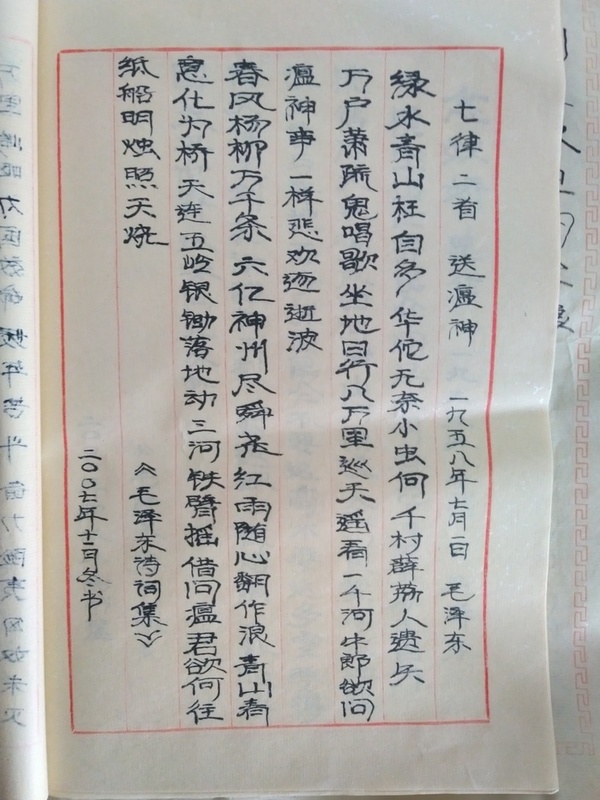 七律二首 送瘟神 一九五八年七月一日 毛泽东
绿水青山枉自多 华佗无奈小虫何 千村薜荔人遗矢
万户萧疏鬼唱歌 坐地日行八万里 巡天遥看一千河 牛郎欲问
瘟神事 一样悲欢逐逝波
春风杨柳万千条 六亿神州尽舜尧 红雨随心翻作浪 青山着
意化为桥 天连五岭银锄落 地动三河铁臂摇 借问瘟君欲何往
纸船明烛照天烧
《毛泽东诗词集》
二〇〇七年十一月冬书